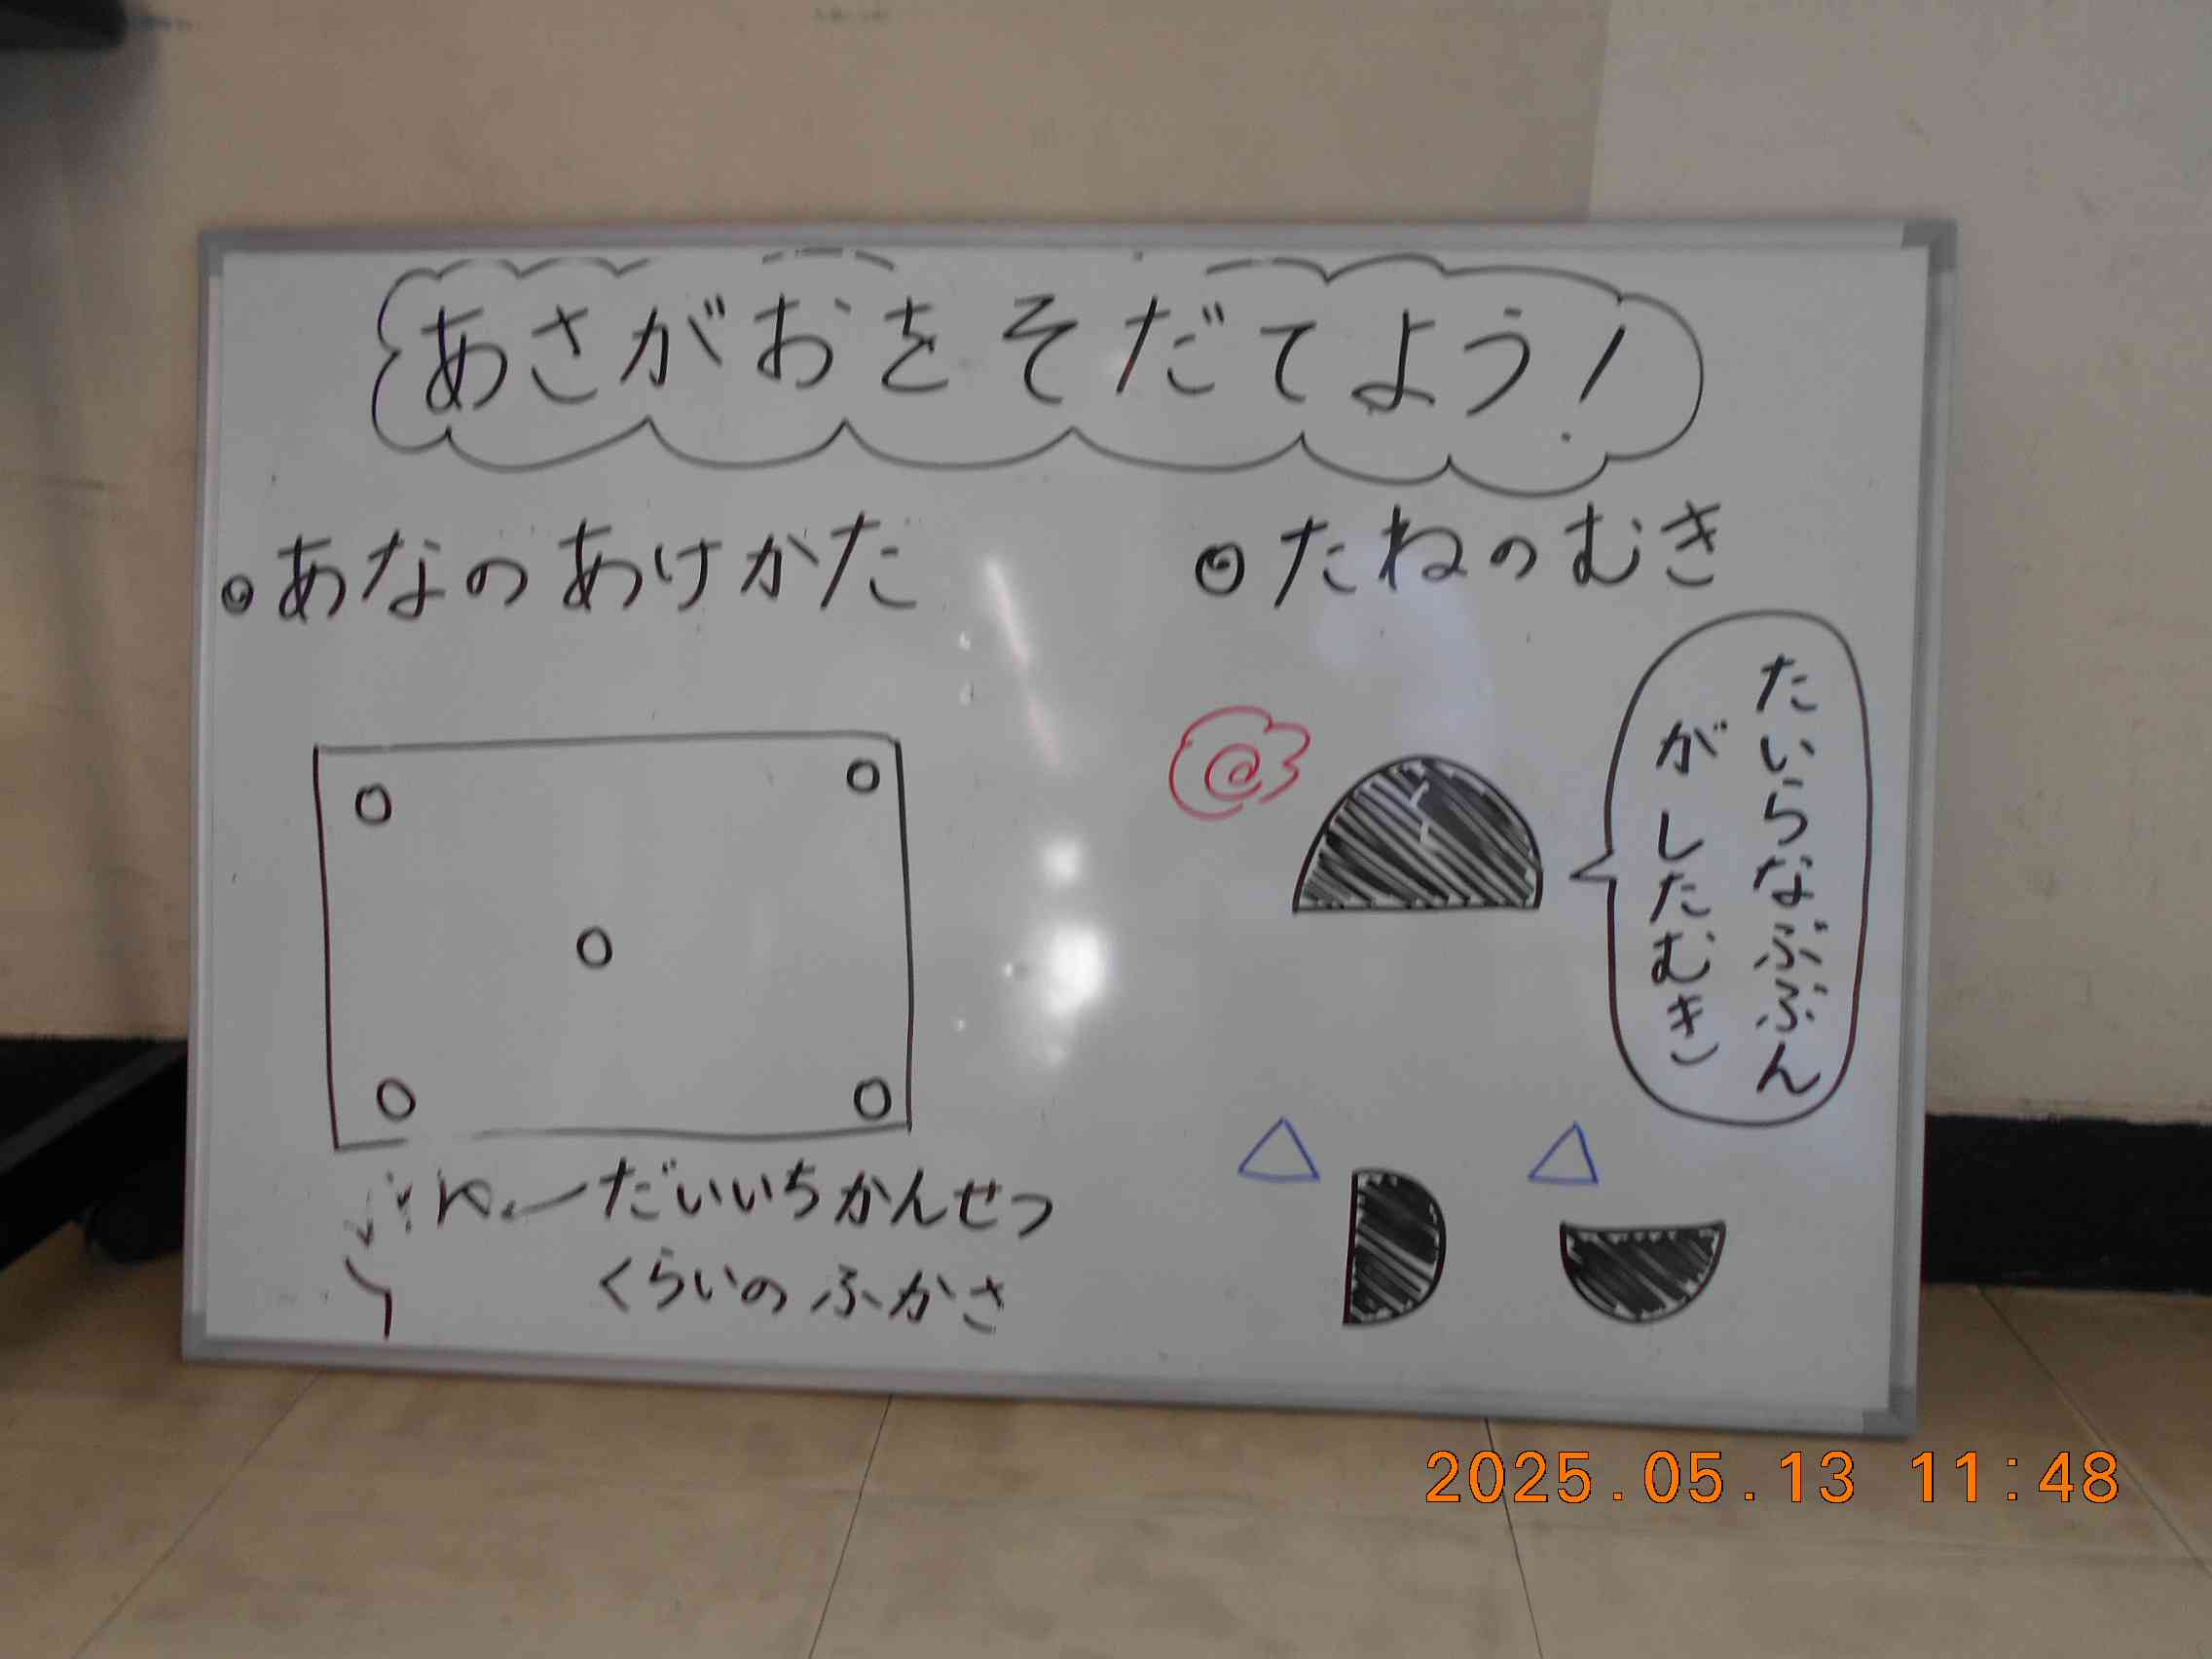 あさがおをそだてよう!
◎あなのあけかた
だいいちかんせつ
くらいのふかさ
◎たねのむき
たいらなぶぶん
がしたむき
2025.05.13 11:48